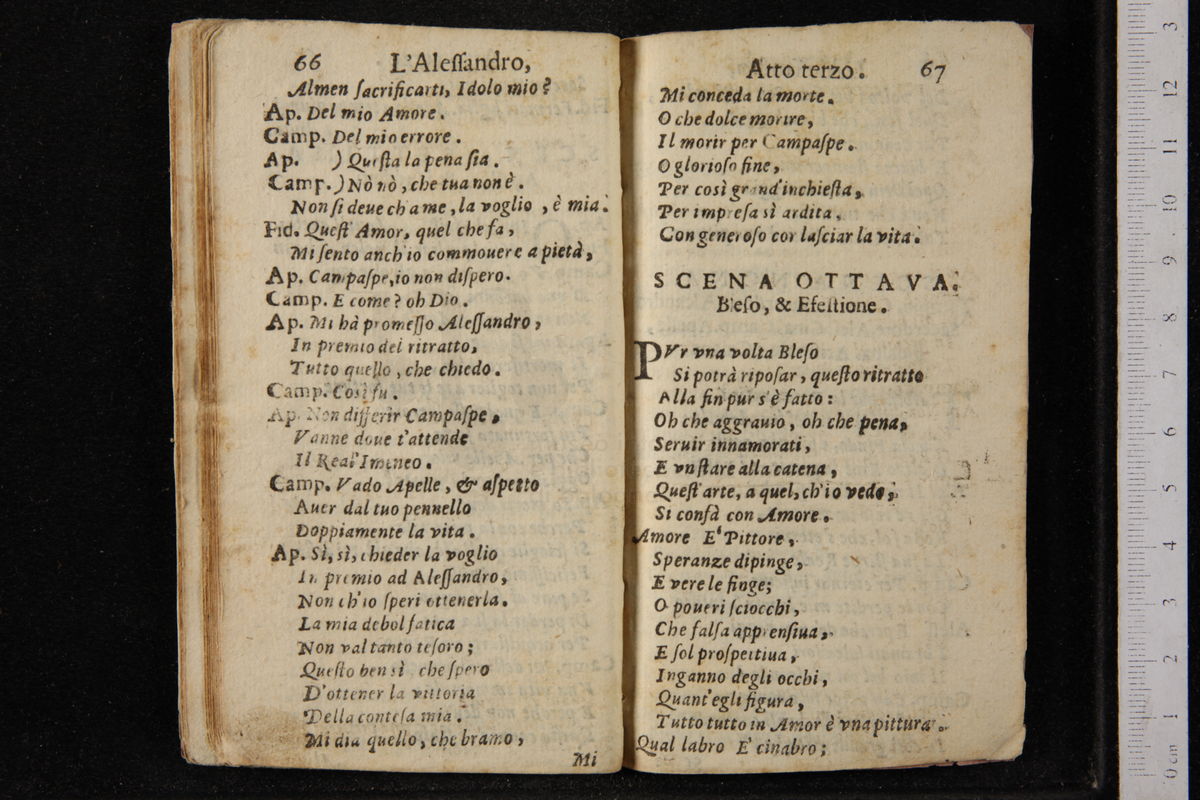 66 L'Aleſſandro,
Almen ſacrificarti, Idolo mio?
Ap. Del mio Amore.
Camp. Del mio errore.
Ap. ) Queſta la pena ſia.
Camp. ) Nò nò, che tua non è.
Non ſi deue ch a me, la voglio, è mia.
Fid. Queſt' Amor, quel che fa,
Mi ſento anch'io commouere a pietà,
Ap. Campaſpe, io non diſpero.
Camp. E come? oh Dio.
Ap. Mi hà promeſſo Aleſſandro,
In premio del ritratto,
Tutto quello, che chiedo.
Camp. Così fu.
Ap. Non differir Campaſpe,
Vanne doue t'attende
Il Real' Imineo.
Camp. Vado Apelle, & aſpetto
Auer dal tuo pennello
Doppiamente la vita.
Ap. Sì, sì, chieder la voglio
In premio ad Aleſſandro,
Non ch'io ſperi ottenerla.
La mia debol fatica
Non val tanto teſoro;
Queſto ben sì che ſpero
D'ottener la vittoria
Della conteſa mia.
Mi dia quello, che bramo,
Mi
Atto terzo. 67
Mi conceda la morte.
O che dolce morire,
Il morir per Campaſpe.
O glorioſo fine,
Per così grand' inchieſta,
Per impreſa sì ardita,
Con generoſo cor laſciar la vita.
SCENA OTTAVA.
Bleſo, & Efeſtione.
PVr vna volta Bleſo
Si potrà ripoſar, queſto ritratto
Alla fin pur s'è fatto:
Oh che aggrauio, oh che pena,
Seruir innamorati,
E vn ſtare alla catena,
Queſt' arte, a quel, ch'io vedo,
Si confà con Amore.
Amore E' Pittore,
Speranze dipinge,
E vere le finge;
O poueri ſciocchi,
Che falſa apprenſiua,
E ſol proſpettiua,
Inganno degli occhi,
Quant'egli figura,
Tutto tutto in Amor è vna pittura.
Qual labro E' cinabro;
0 cm 1 2 3 4 5 6 7 8 9 10 11 12 13